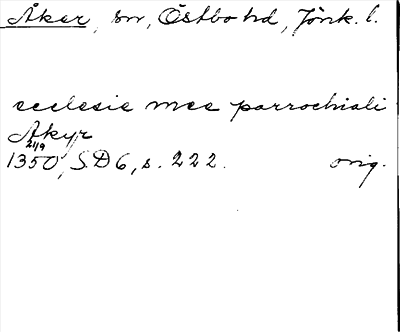 Åker, sn, Östbo hd, Jönk. l.
ecclesie mee parrochiali
Åkyr
1350 21/9, SD 6, s. 222. orig.